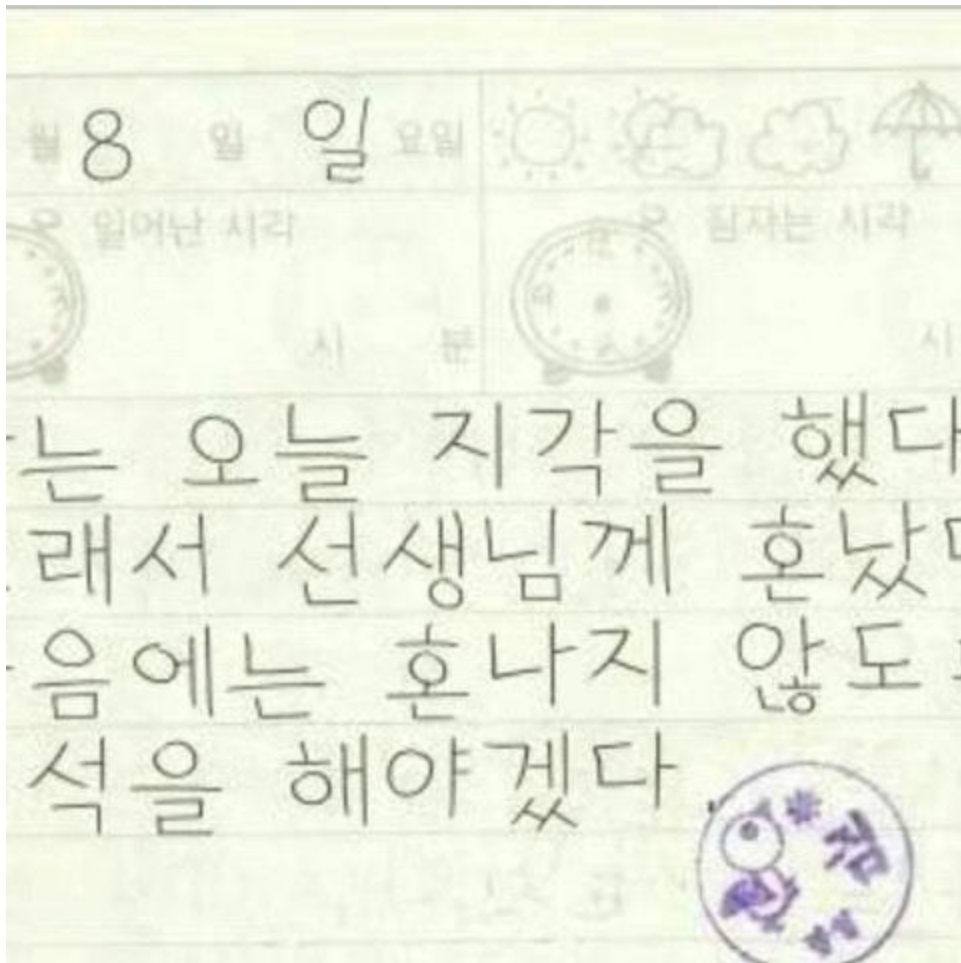 월 8 일 일 요일
일어난 시각 잠자는 시각
시 분 시
는 오늘 지각을 했다
래서 선생님께 혼났
음에는 혼나지 않도
석을 해야겠다.